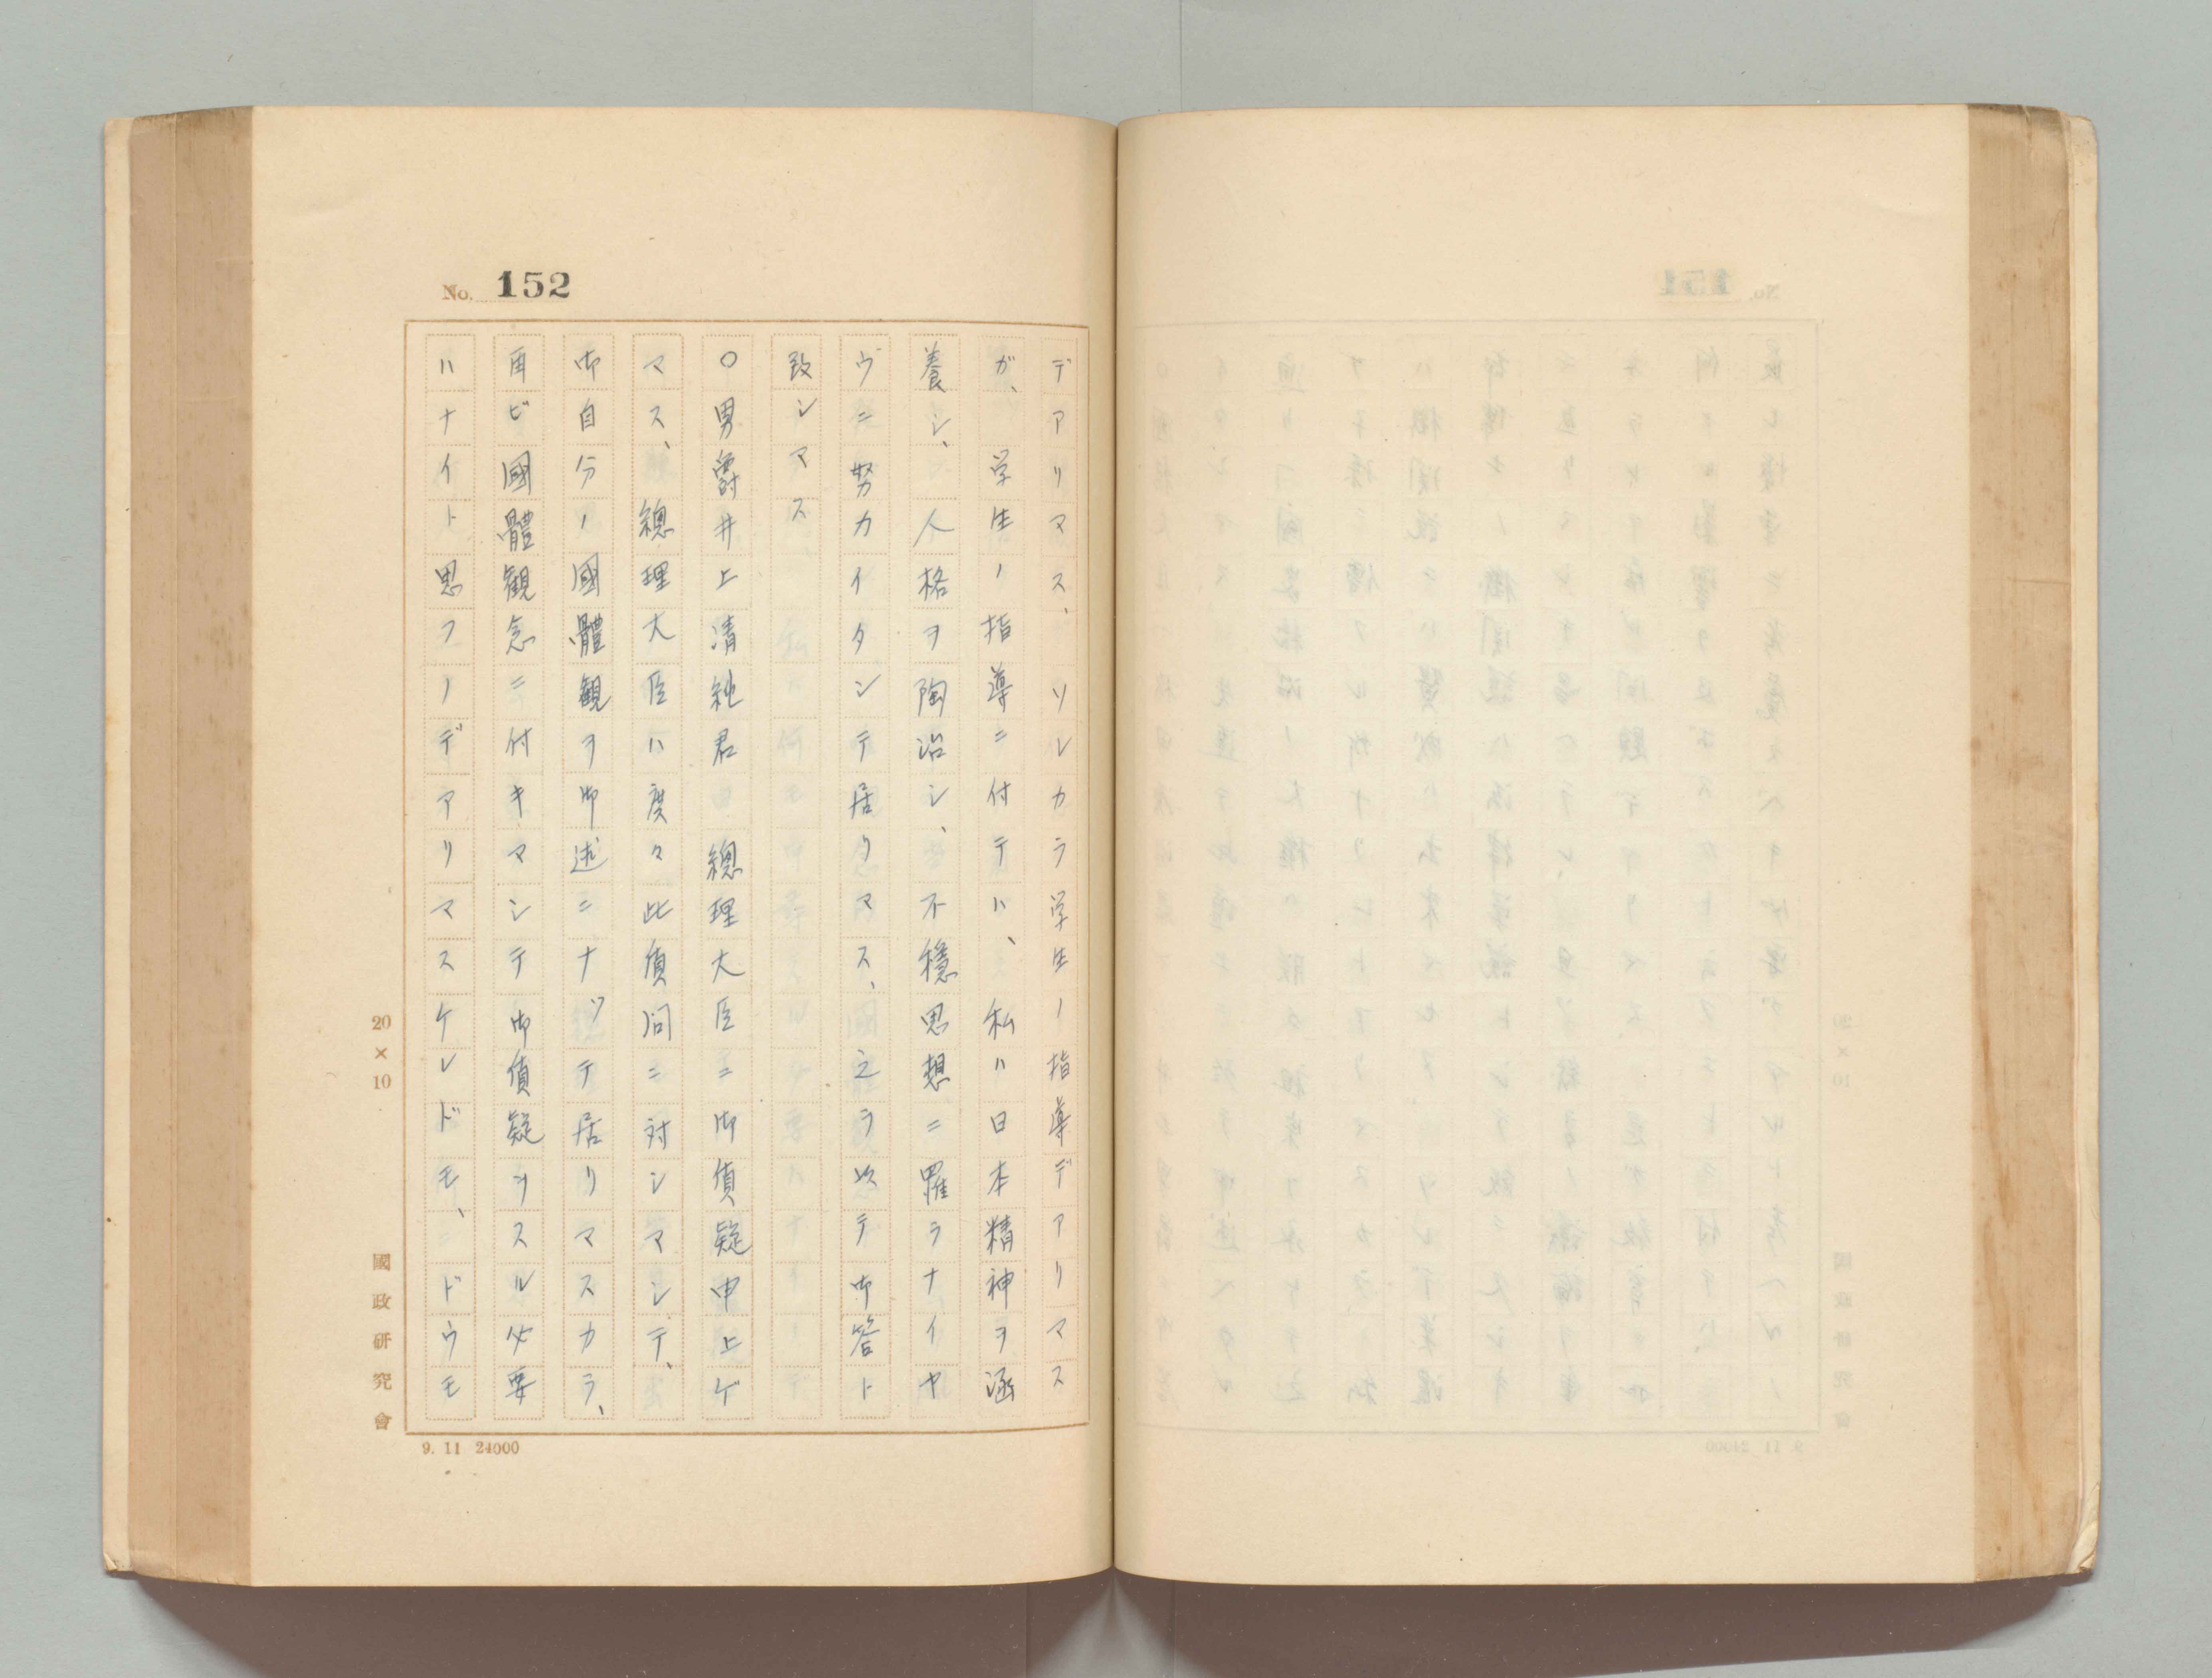 No. 152
デアリマス、ソレカラ学生ノ指導デアリマス
ガ、学生ノ指導ニ付テハ、私ハ日本精神ヲ涵
養シ、人格ヲ陶冶シ、不穏思想ニ罹ラナイヤ
ウニ努力イタシテ居リマス、之ヲ以テ御答ト
致シマス
○男爵井上清純君 總理大臣ニ御質疑申上ゲ
マス、總理大臣ハ度々此質問ニ対シマシテ、
御自分ノ國體観ヲ御述ニナッテ居リマスカラ、
再ビ國體観念ニ付キマシテ御質疑ヲスル必要
ハナイト思フノデアリマスケレドモ、ドウモ
20×10
國政研究會
9. 11 24000